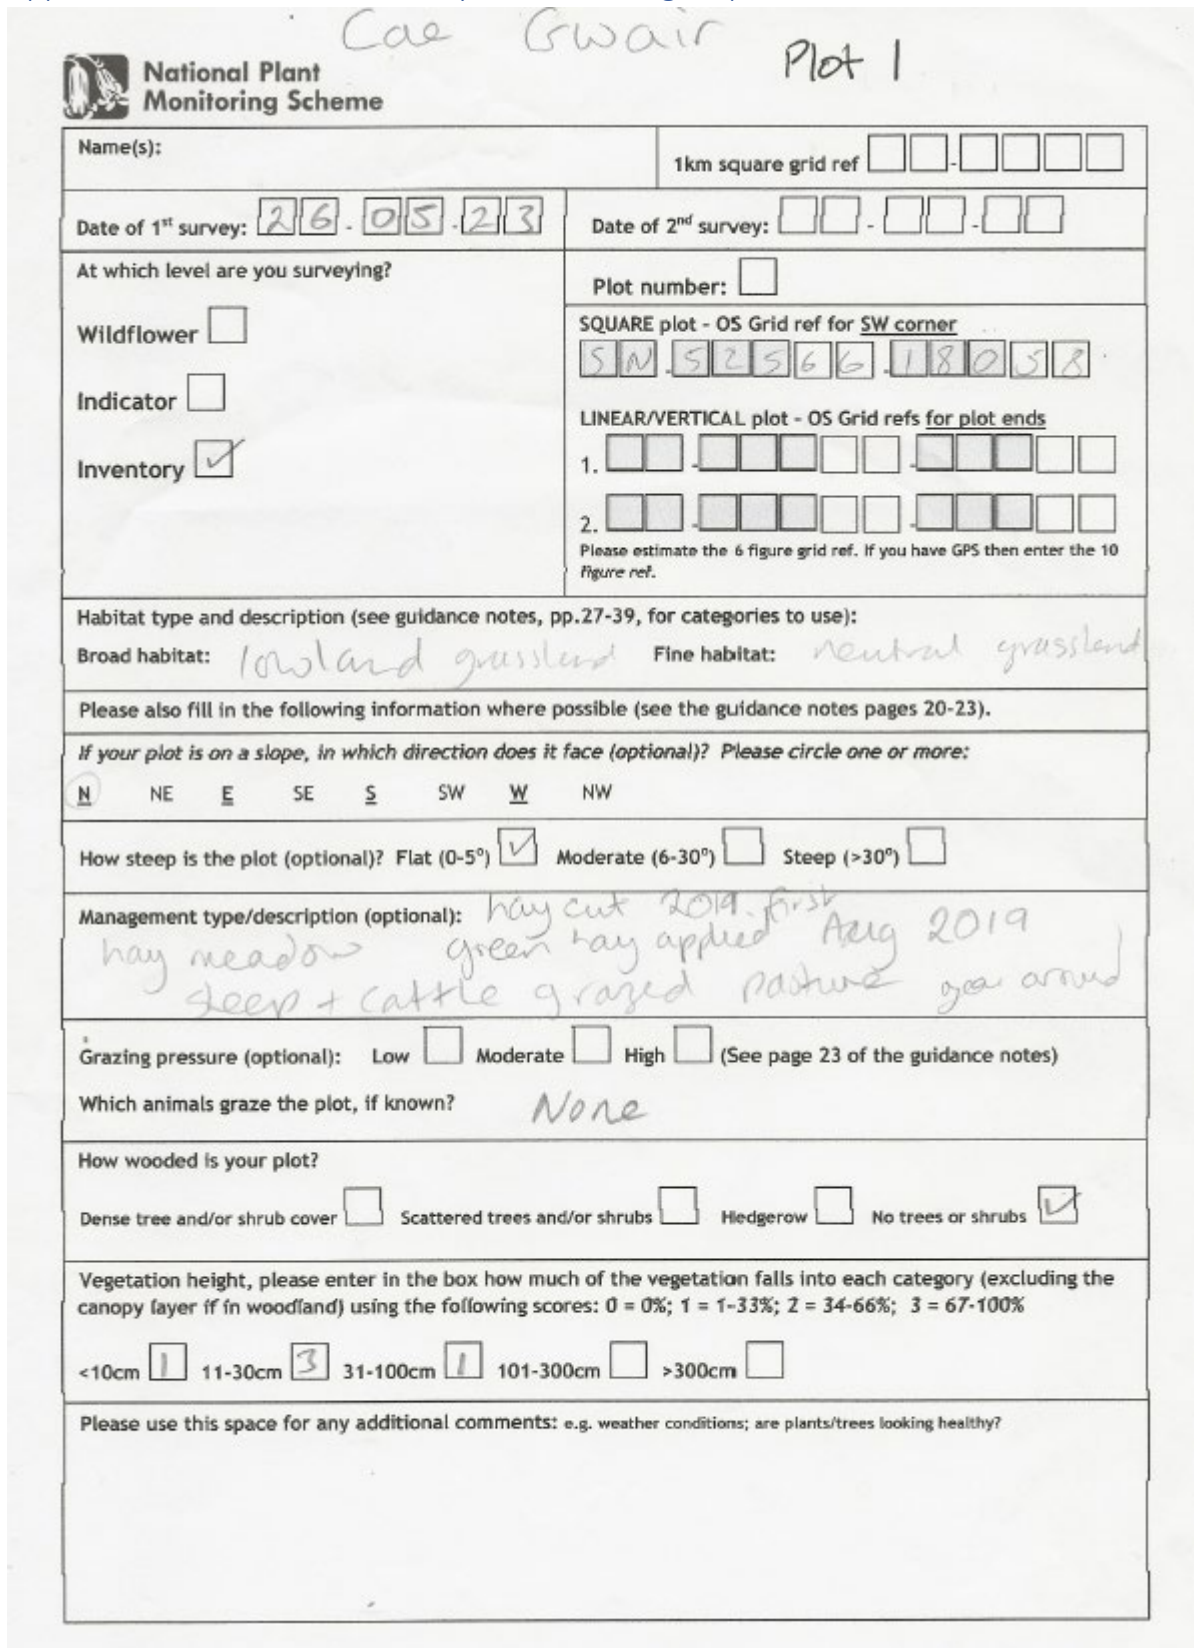 Cae Gwair
Plot 1
National Plant
Monitoring Scheme
Name(s):
1km square grid ref -
Date of 1st survey: 26.05.23
Date of 2nd survey: - -
At which level are you surveying?
Plot number:
Wildflower
Indicator
Inventory ✓
SQUARE plot - OS Grid ref for SW corner
SN.52566.18058
LINEAR/VERTICAL plot - OS Grid refs for plot ends
1. - -
2. - -
Please estimate the 6 figure grid ref. If you have GPS then enter the 10
figure ref.
Habitat type and description (see guidance notes, pp.27-39, for categories to use):
Broad habitat: lowland grassland Fine habitat: neutral grassland
Please also fill in the following information where possible (see the guidance notes pages 20-23).
If your plot is on a slope, in which direction does it face (optional)? Please circle one or more:
N NE E SE S SW W NW
How steep is the plot (optional)? Flat (0-5°) ✓ Moderate (6-30°) Steep (>30°)
Management type/description (optional): hay cut 2019. first
hay meadow green hay applied Aug 2019
sheep + cattle grazed pasture year around
Grazing pressure (optional): Low Moderate High (See page 23 of the guidance notes)
Which animals graze the plot, if known? None
How wooded is your plot?
Dense tree and/or shrub cover Scattered trees and/or shrubs Hedgerow No trees or shrubs ✓
Vegetation height, please enter in the box how much of the vegetation falls into each category (excluding the
canopy layer if in woodland) using the following scores: 0 = 0%; 1 = 1-33%; 2 = 34-66%; 3 = 67-100%
<10cm 1 11-30cm 3 31-100cm 1 101-300cm >300cm
Please use this space for any additional comments: e.g. weather conditions; are plants/trees looking healthy?